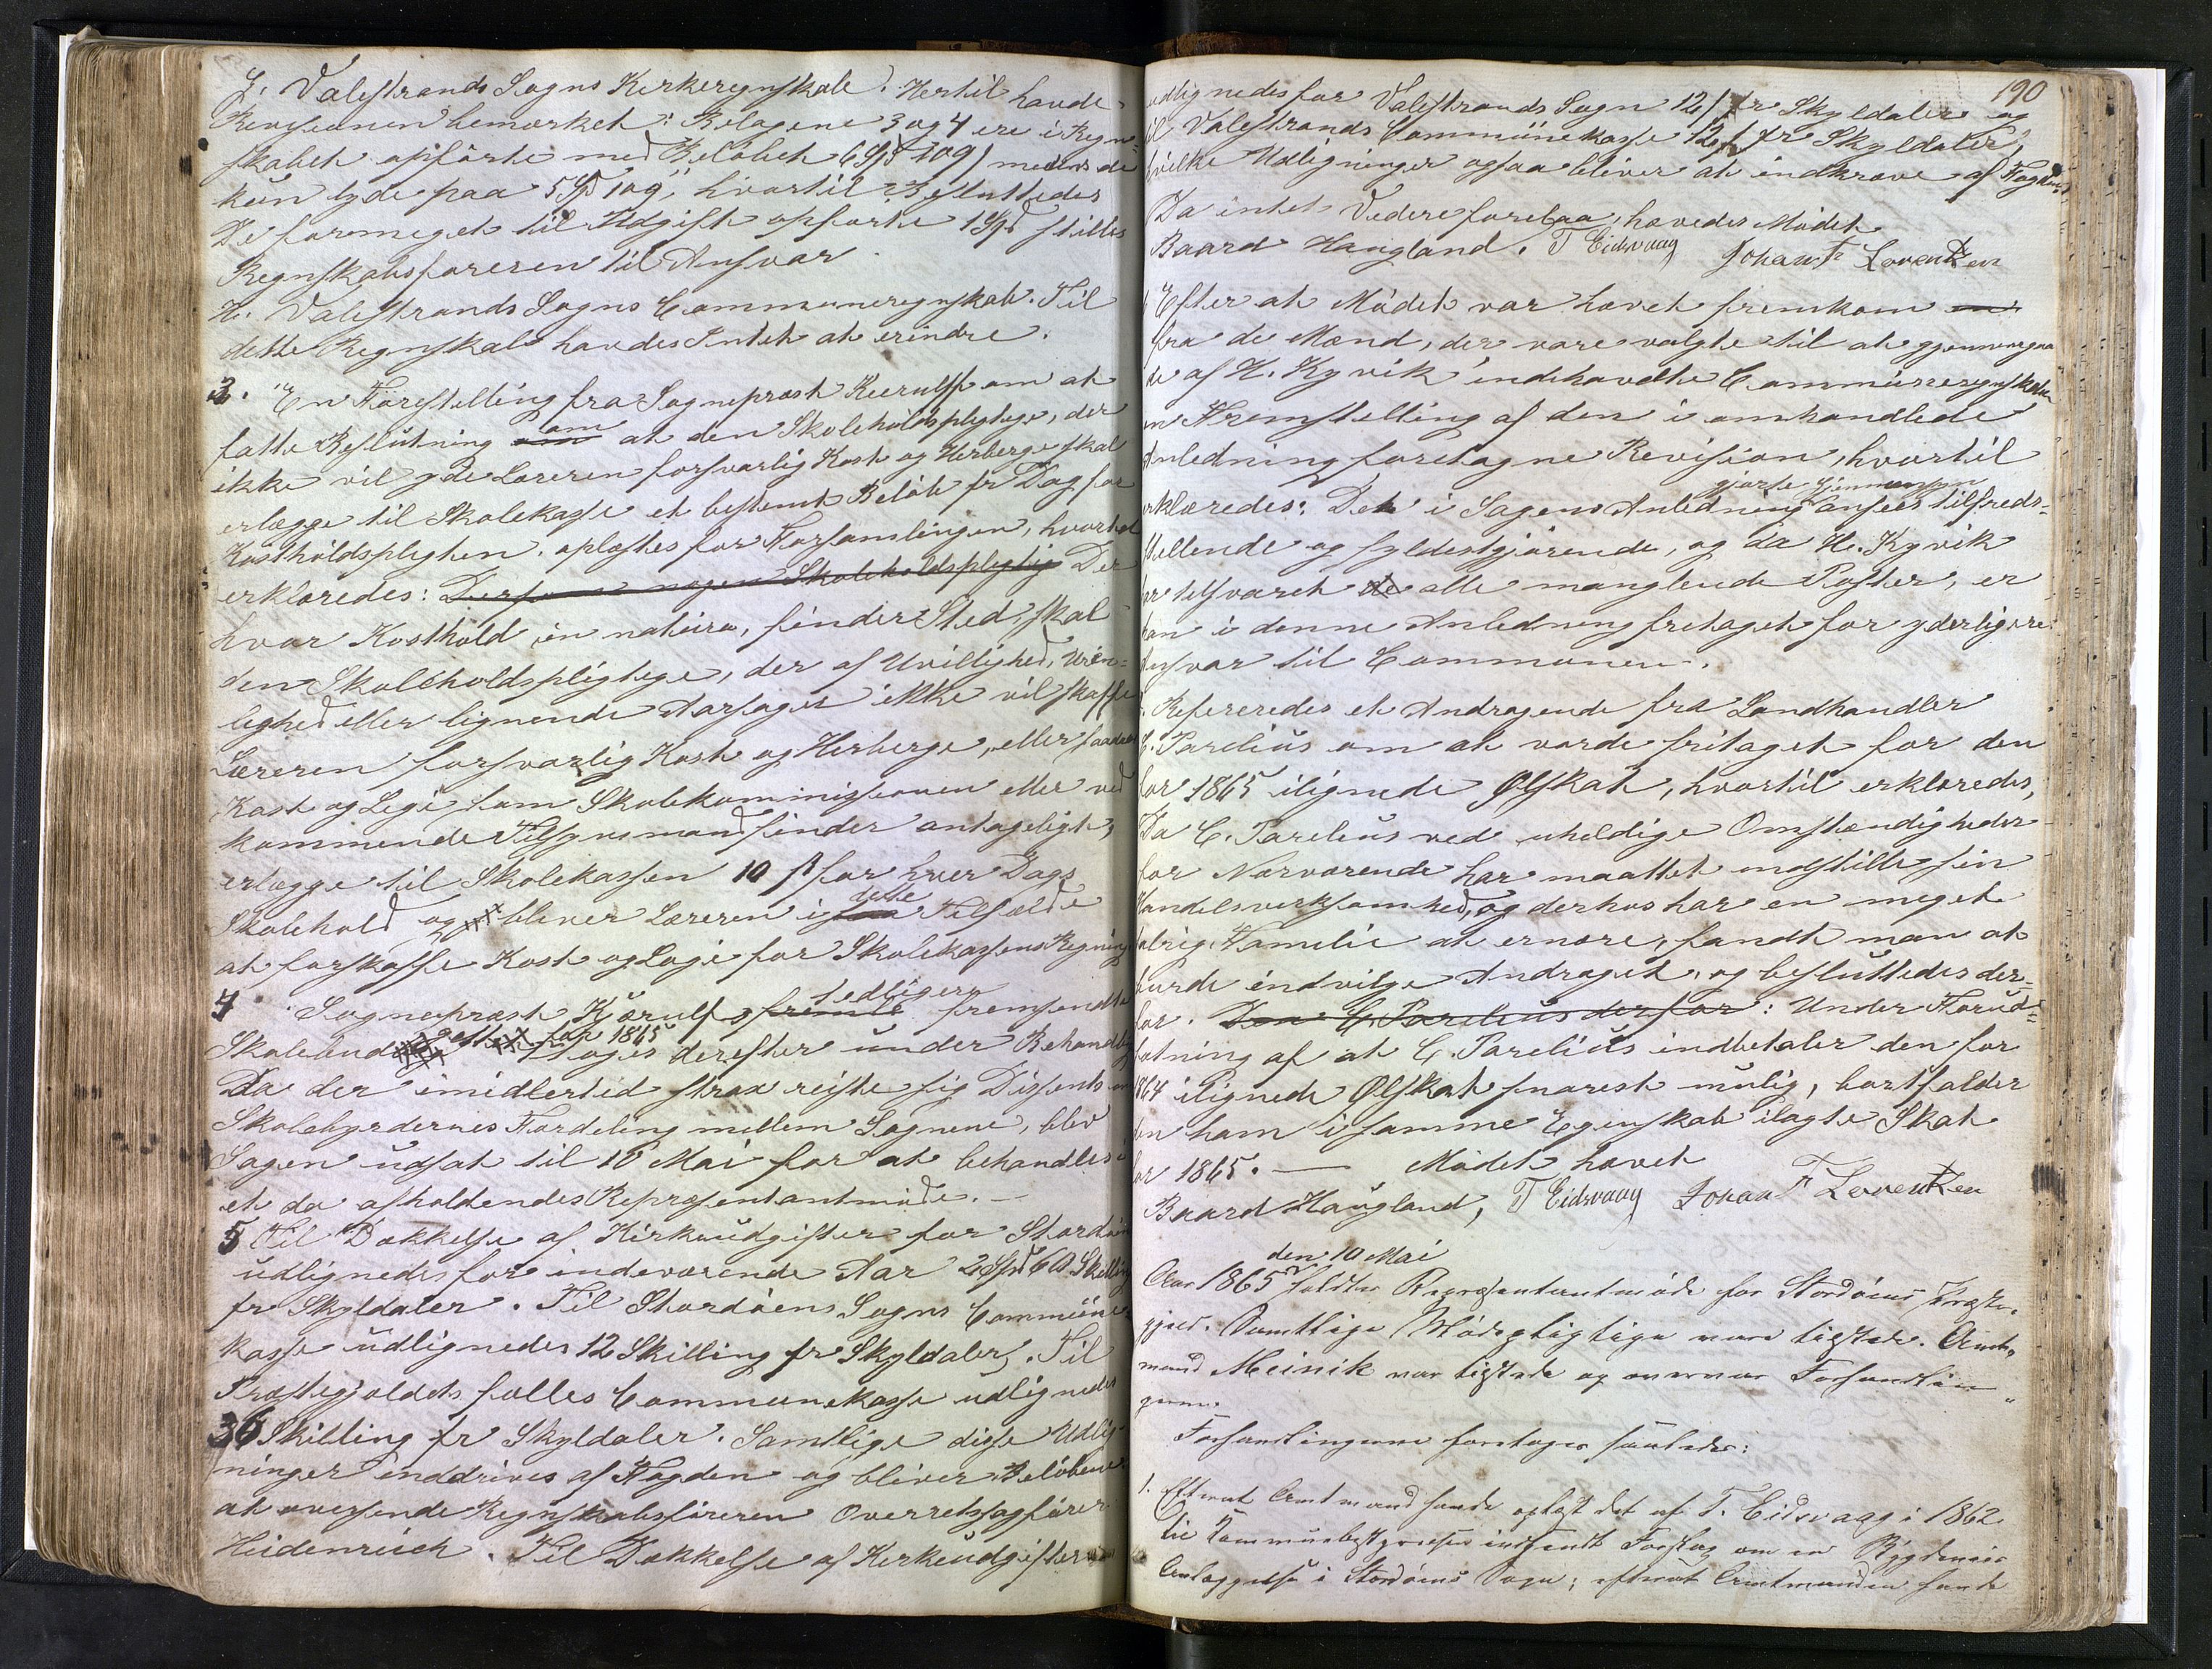 G. Valestrands Sogns Kirkeregnskab. Hertil havde
Revisionen bemærket: Bilagene 3 og 4 ere i Regn-
skabet opførte med Beløbet 6 Spd 109 s medens de
kun lyde paa 5 Spd 109 s, hvortil besluttedes
De formeget til Udgift opførte 1 Spd stilles
Regnskabsføreren til Ansvar.
H. Valestrands Sogns Communeregnskab. Til
dette Regnskab havdes Intet at erindre.
3. En Forestilling fra Sogneprest Kierulff om at
fatte Beslutning om at den Skoleholdspligtige, der
ikke vil yde Læreren forsvarlig Kost og Herberge skal
erlægge til Skolekasse et bestemt Beløb pr Dag for
Kostholdspligten, oplæstes for Forsamlingen, hvortil
erklæredes: Dersom nogen Skoleholdspligtig Der
hvor Kosthold in natura, finder Sted, skal
den Skoleholdspligtige, der af Uvillighed, Uren-
lighed eller lignende Aarsager ikke vil skaffe
Læreren forsvarlig Kost og Herberge, eller saadan
Kost og Logi, som Skolekommissionen eller ved
kommende Tilsynsmand finder antageligt,
erlægge til Skolekassen 10 s for hver Dags
Skolehold og bliver Læreren i dette Tilfælde
at forskaffe Kost og Logi for Skolekassens Regning
4. Sogneprest Kjerulfs tidligere fremsendte
Skolebudget for 1865 toges derefter under Behandling
Da der imidlertid strax reiste sig Dissents om
Skolebyrdernes Fordeling mellem Sognene, blev
Sagen udsat til 10 Mai for at behandles i
et da afholdendes Repræsentantmøde. —
5 Til Dækkelse af Kirkeudgifter for Stordøen
udlignedes for indeværende Aar 2 Spd 60 Skilling
pr Skyldaler. Til Stordøens Sogns Commune
kasse udlignedes 12 Skilling pr Skyldaler. Til
Præstegjeldets fælles Communekasse udlignedes
36 Skilling pr Skyldaler. Samtlige disse Udlig-
ninger inddrives af Fogden og bliver Beløbene
at oversende Regnskabsføreren Overretssagfører
Heidenreich. Til Dækkelse af Kirkeudgifter
190
udlignedes for Valestrands Sogn 12 s pr Skyldaler og
til Valestrands Communekasse 12 s pr Skyldaler,
hvilke Udligninger ogsaa bliver at indkræve af Fogden
Da intet Videre forelaa, hævedes Mødet
Baard Haugland. T Eidsvaag Johan F Lorentzen
Efter at Mødet var hævet fremkom en
fra de Mænd, der vare valgte til at gjennemgaa
de af H. Kyvik indehavdte Communeregnskaber
en Fremstilling af den i omhandlede
Anledning foretagne Revision, hvortil
erklæredes: Den i Sagens Anledning gjorte Gjennemsyn ansees tilfreds-
stillende og fyldestgjørende, og da H. Kyvik
har tilsvaret de alle manglende Poster, er
han i denne Anledning fritaget for yderligere
Ansvar til Communen.
Refereredes et Andragende fra Landhandler
C. Parelius om at vorde fritaget for den
for 1865 ilignede Ølskat, hvortil erklæredes,
Da C. Parelius ved uheldige Omstændigheder
for Nærværende har maattet indstille sin
Handelsvirksomhed, og derhos har en meget
talrig Familie at ernære, fandt man at
burde indvilge Andraget, og besluttedes der-
for. Den C. Parelius derfor: Under Forud-
sætning af at C. Parelius indbetaler den for
1864 ilignede Ølskat snarest mulig, bortfalder
den ham i samme Egenskab ilagte Skat
for 1865. — Mødet hævet
Baard Haugland, T Eidsvaag Johan F Lorentzen
Aar 1865 den 10 Mai holdtes Repræsentantmøde for Stordøens Præste-
gjeld. Samtlige Mødepligtige vare tilstede. Amt-
mand Meinik var tilstede og overvar Forhandlin-
gerne.
Forhandlingerne foretoges saaledes:
1. Efterat Amtmand havde oplæst det af T. Eidsvaag i 1862
til Kommunebestyrelsen indsendte Forslag om en Bygdeveis
Anlæggelse i Stordøens Sogn; efterat Amtmanden havde